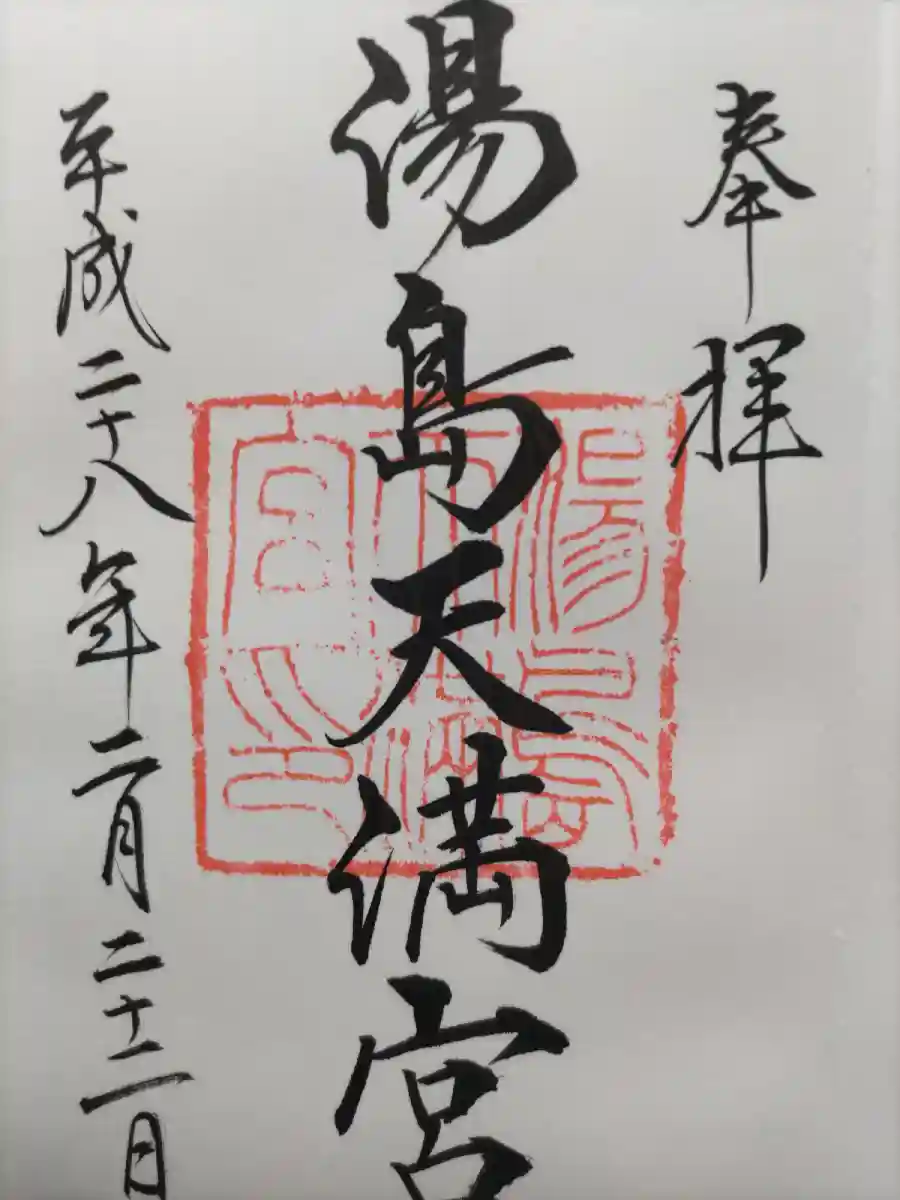 奉拝
湯島天満宮
平成二十八年二月二十二日
湯島
天満
宮之印